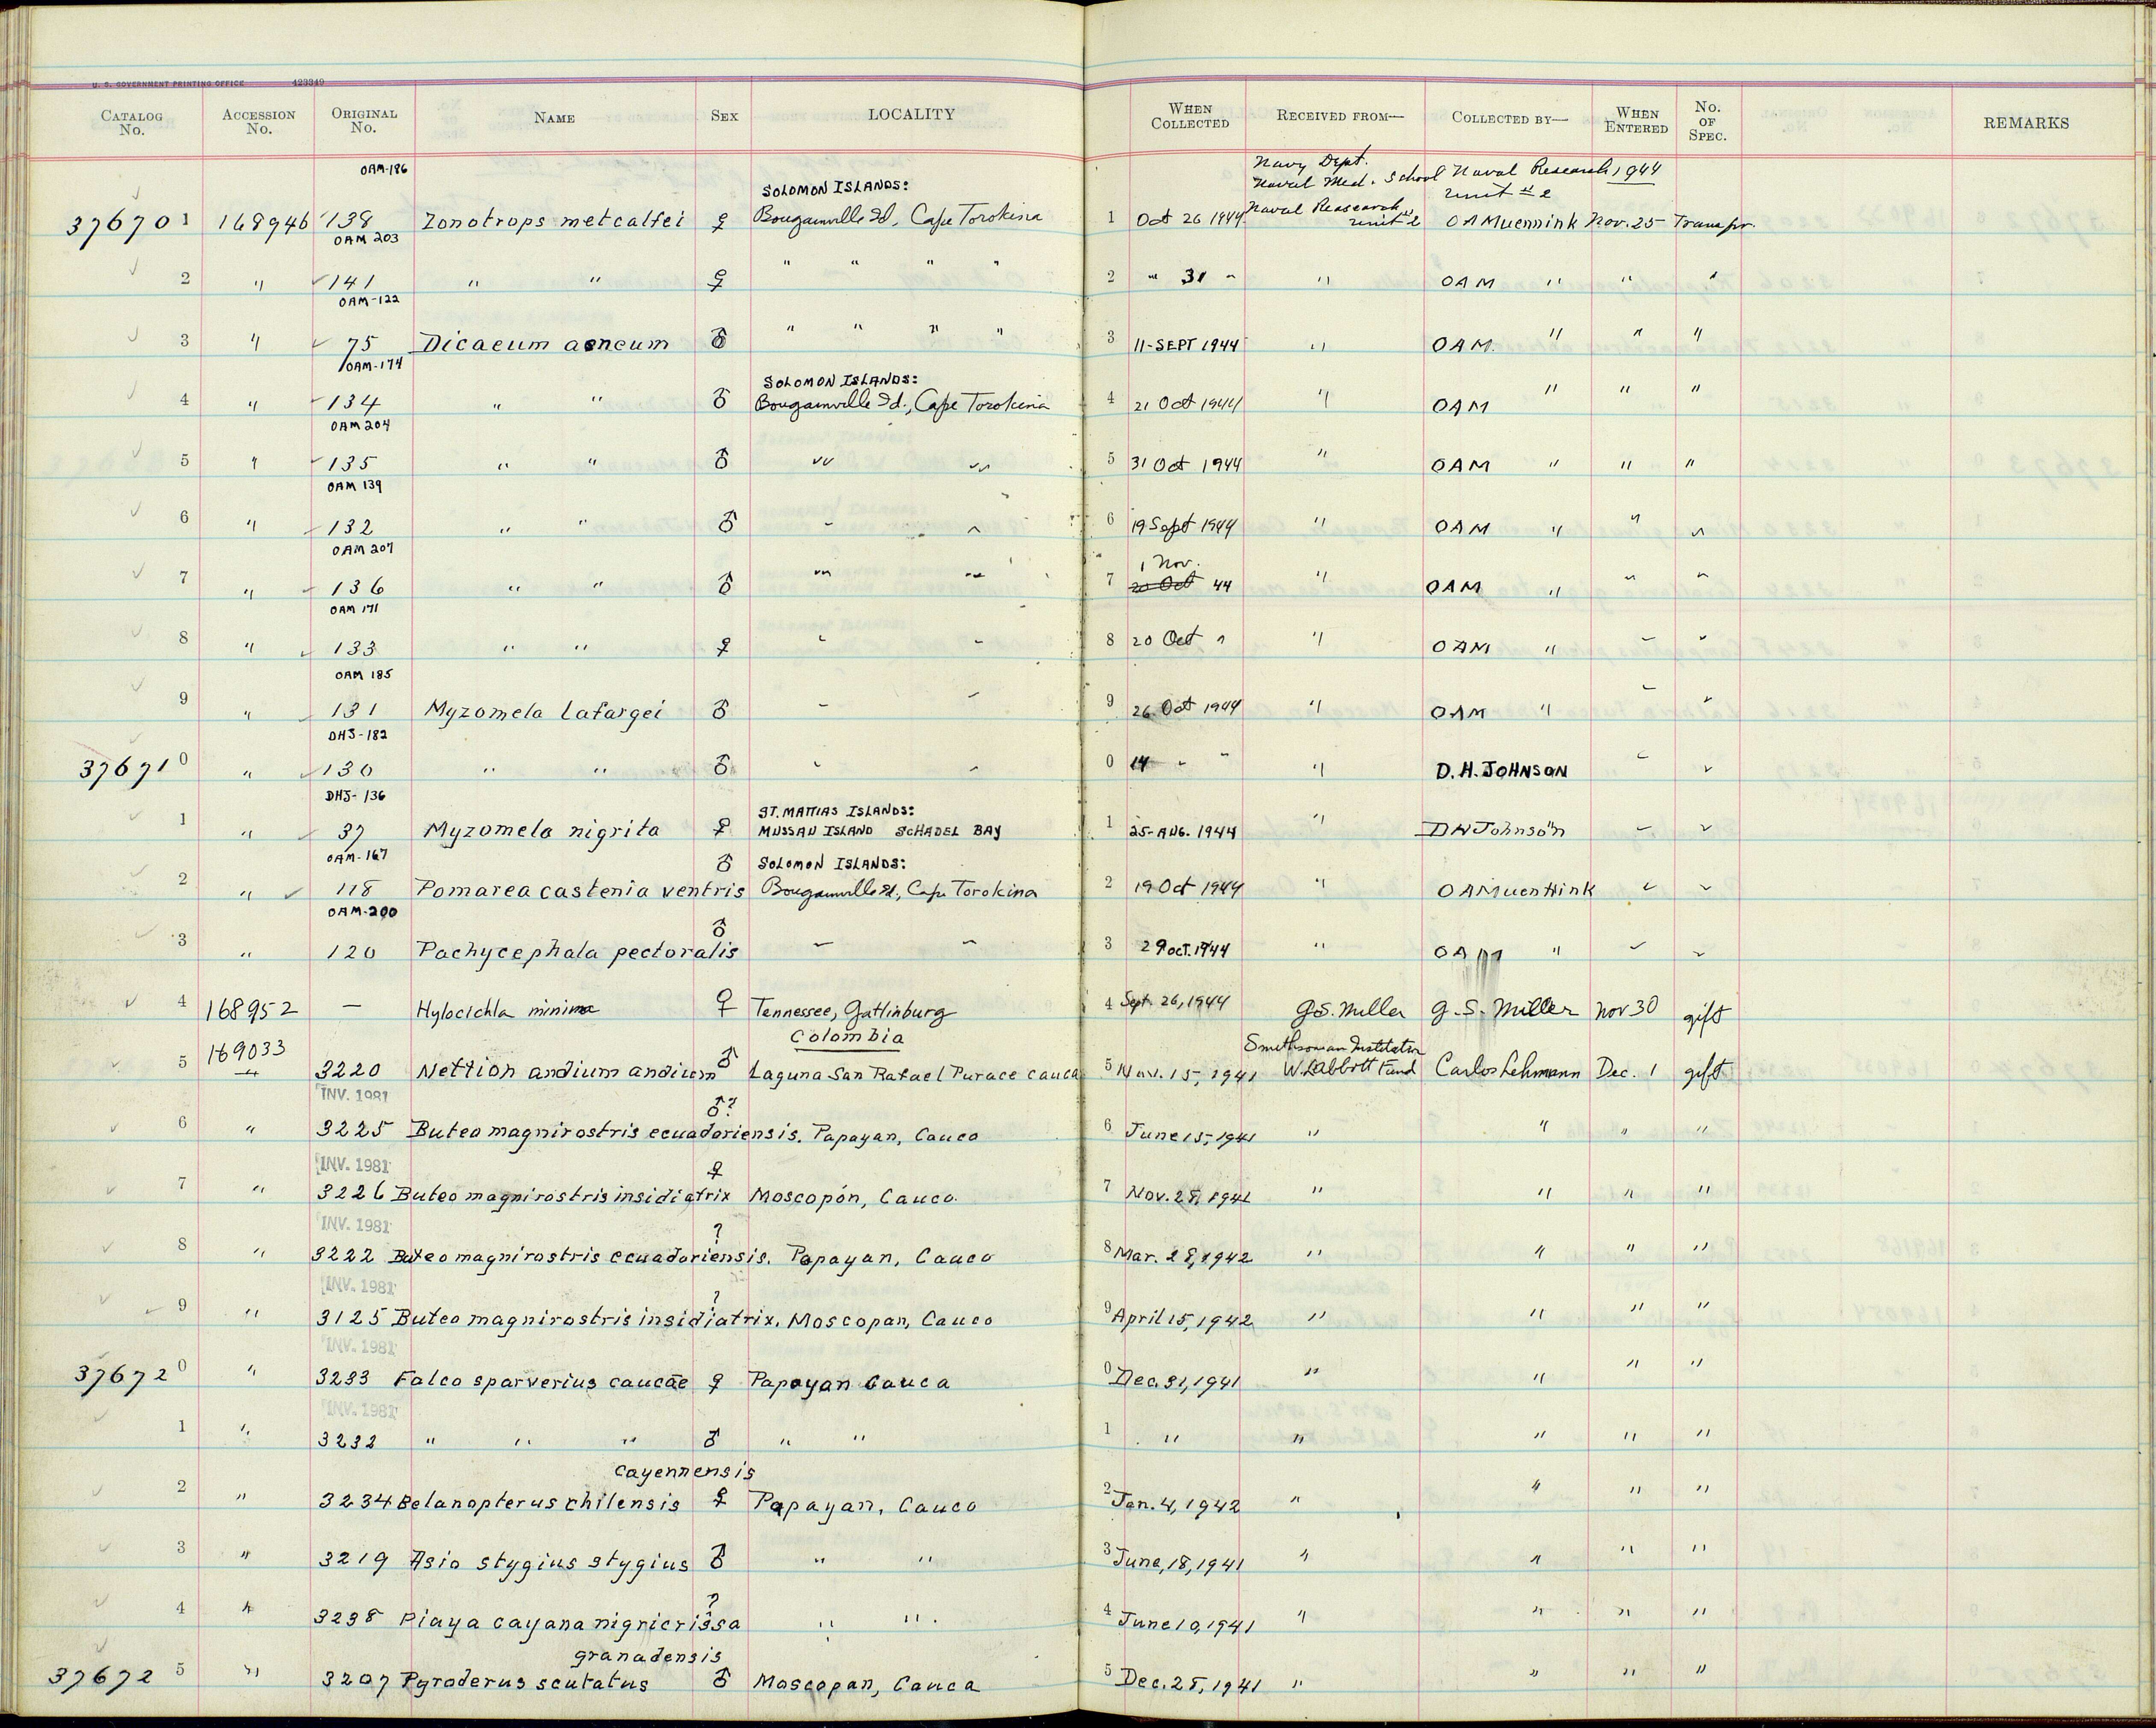 U. S. GOVERNMENT PRINTING OFFICE 423349
CATALOG No. ACCESSION No. ORIGINAL No. NAME SEX LOCALITY WHEN COLLECTED RECEIVED FROM— COLLECTED BY— WHEN ENTERED No. OF SPEC. REMARKS
OAM-186 SOLOMON ISLANDS: Navy Dept. Naval Med. School Naval Research unit #2 1944
376701 168946 138 Zonotrops metcalfei ♀ Bougainville Id, Cape Torokina 1 Oct 26 1944 Naval Reasearch unit #2 OAMuennink Nov. 25 Transfr.
OAM 203 " " " "
2 " 141 " " ♀ 2 " 31 " " OAM " " "
OAM-122 " " " "
3 " 75 Dicaeum aeneum ♂ 3 11-SEPT 1944 " OAM. " " "
OAM-174 SOLOMON ISLANDS:
4 " 134 " " ♂ Bougainville Id., Cape Torokina 4 21 Oct 1944 " OAM " " "
OAM 204
5 " 135 " " ♂ " " 5 31 Oct 1944 " OAM " " "
OAM 139
6 " 132 " " ♂ " " 6 19 Sept 1944 " OAM " " "
OAM 207 1 Nov.
7 " 136 " " ♂ " " 7 20 Oct 44 " OAM " " "
OAM 171
8 " 133 " " ♀ " " 8 20 Oct " " OAM " " "
OAM 185
9 " 131 Myzomela lafargei ♂ " " 9 26 Oct 1944 " OAM " " "
DHJ-182
376710 " 130 " " ♂ " " 0 14 " " " D. H. JOHNSON " "
DHJ-136 ST. MATTIAS ISLANDS:
1 " 37 Myzomela nigrita ♀ MUSSAU ISLAND SCHADEL BAY 1 25-AUG. 1944 " DH Johnson " "
OAM-167 ♂ SOLOMON ISLANDS:
2 " 118 Pomarea castenia ventris Bougainville Id., Cape Torokina 2 19 Oct 1944 " OAMuennink " "
OAM-200 ♂
3 " 120 Pachycephala pectoralis " " 3 29 OCT. 1944 " OAM " " "
4 168952 — Hylocichla minima ♀ Tennessee, Gatlinburg 4 Sept. 26, 1944 G.S. Miller G. S. Miller Nov 30 gift
Colombia Smithsonian Institution
5 169033 3220 Nettion andium andium ♂ Laguna San Rafael Purace Cauca 5 Nov. 15, 1941 W.L. Abbott Fund Carlos Lehmann Dec. 1 gift
INV. 1981 ♂?
6 " 3225 Buteo magnirostris ecuadoriensis. Papayan, Cauca 6 June 15, 1941 " " " "
INV. 1981 ♀
7 " 3226 Buteo magnirostris insidiatrix Moscopón, Cauca. 7 Nov. 28, 1941 " " " "
INV. 1981 ?
8 " 3222 Buteo magnirostris ecuadoriensis. Papayan, Cauca 8 Mar. 28, 1942 " " " "
INV. 1981 ?
9 " 3125 Buteo magnirostris insidiatrix. Moscopan, Cauca 9 April 15, 1942 " " " "
INV. 1981
376720 " 3233 Falco sparverius caucae ♀ Papayan Cauca 0 Dec. 31, 1941 " " " "
INV. 1981
1 " 3232 " " " ♂ " " 1 " " " " "
cayennensis
2 " 3234 Belanopterus chilensis ♀ Papayan, Cauca 2 Jan. 4, 1942 " " " "
3 " 3219 Asio stygius stygius ♂ " " 3 June, 18, 1941 " " " "
?
4 " 3238 Piaya cayana nigricrissa " " 4 June 10, 1941 " " " "
granadensis
376725 " 3207 Pyroderus scutatus ♂ Moscopan, Cauca 5 Dec. 28, 1941 " " " "